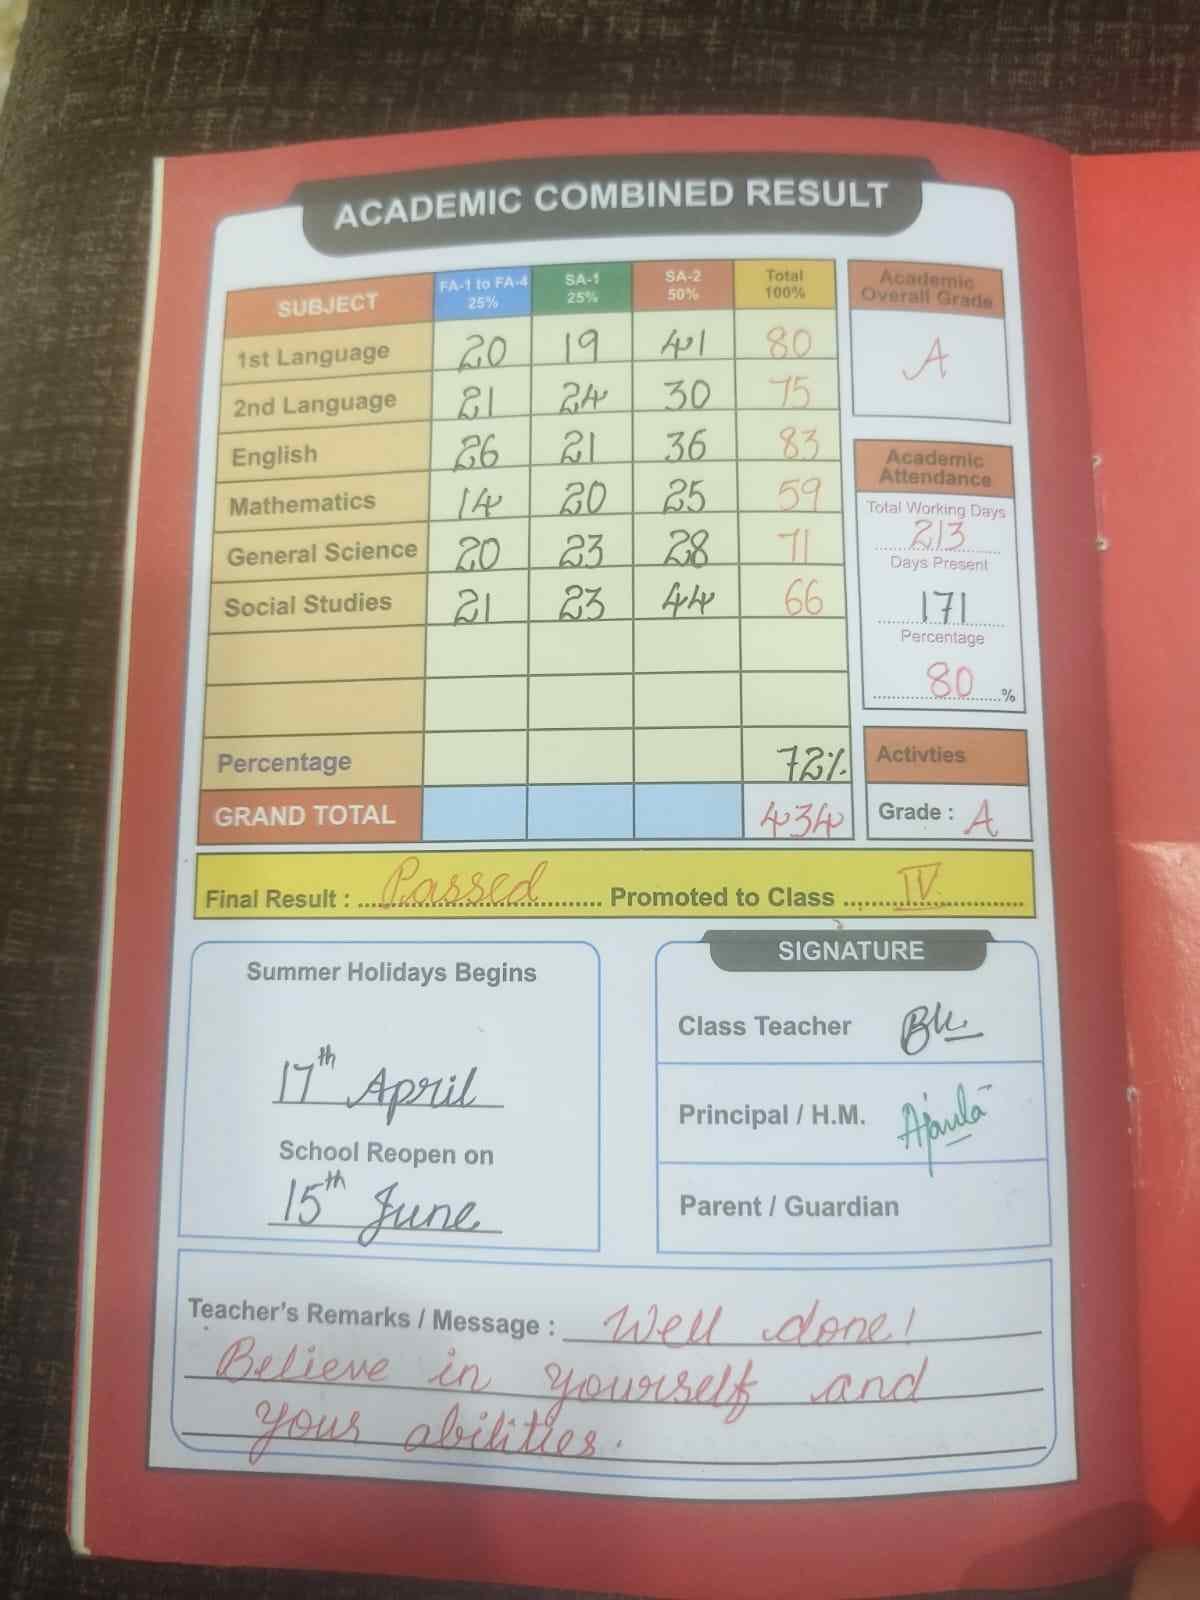 ACADEMIC COMBINED RESULT
SUBJECT FA-1 to FA-4 25% SA-1 25% SA-2 50% Total 100%
1st Language 20 19 41 80
2nd Language 21 24 30 75
English 26 21 36 83
Mathematics 14 20 25 59
General Science 20 23 28 71
Social Studies 21 23 44 66
Percentage 72%
GRAND TOTAL 434
Academic
Overall Grade
A
Academic
Attendance
Total Working Days
213
Days Present
171
Percentage
80 %
Activties
Grade : A
Final Result : Passed Promoted to Class IV
Summer Holidays Begins
17th April
School Reopen on
15th June
SIGNATURE
Class Teacher
Principal / H.M.
Parent / Guardian
Teacher's Remarks / Message : Well done!
Believe in yourself and
your abilities.